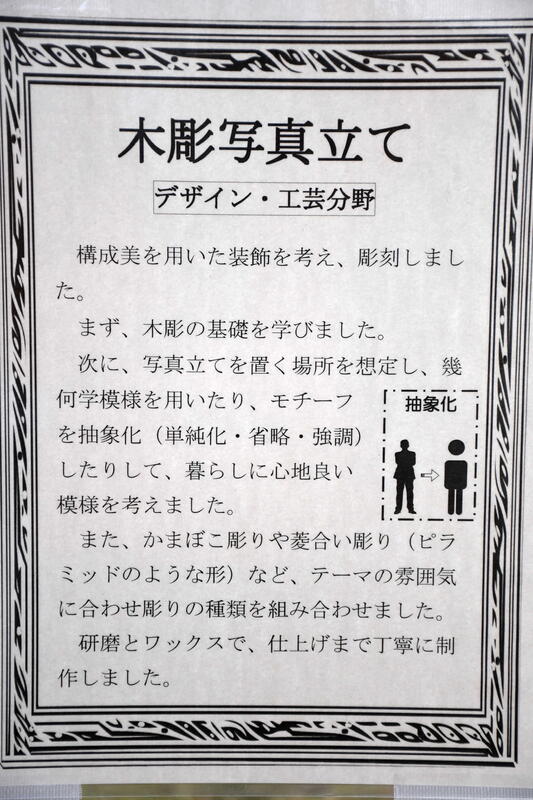 木彫写真立て
デザイン・工芸分野
構成美を用いた装飾を考え、彫刻しまし
た。
まず、木彫の基礎を学びました。
次に、写真立てを置く場所を想定し、幾
何学模様を用いたり、モチーフ
を抽象化（単純化・省略・強調）
したりして、暮らしに心地良い
模様を考えました。
抽象化
また、かまぼこ彫りや菱合い彫り（ピラ
ミッドのような形）など、テーマの雰囲気
に合わせ彫りの種類を組み合わせました。
研磨とワックスで、仕上げまで丁寧に制
作しました。